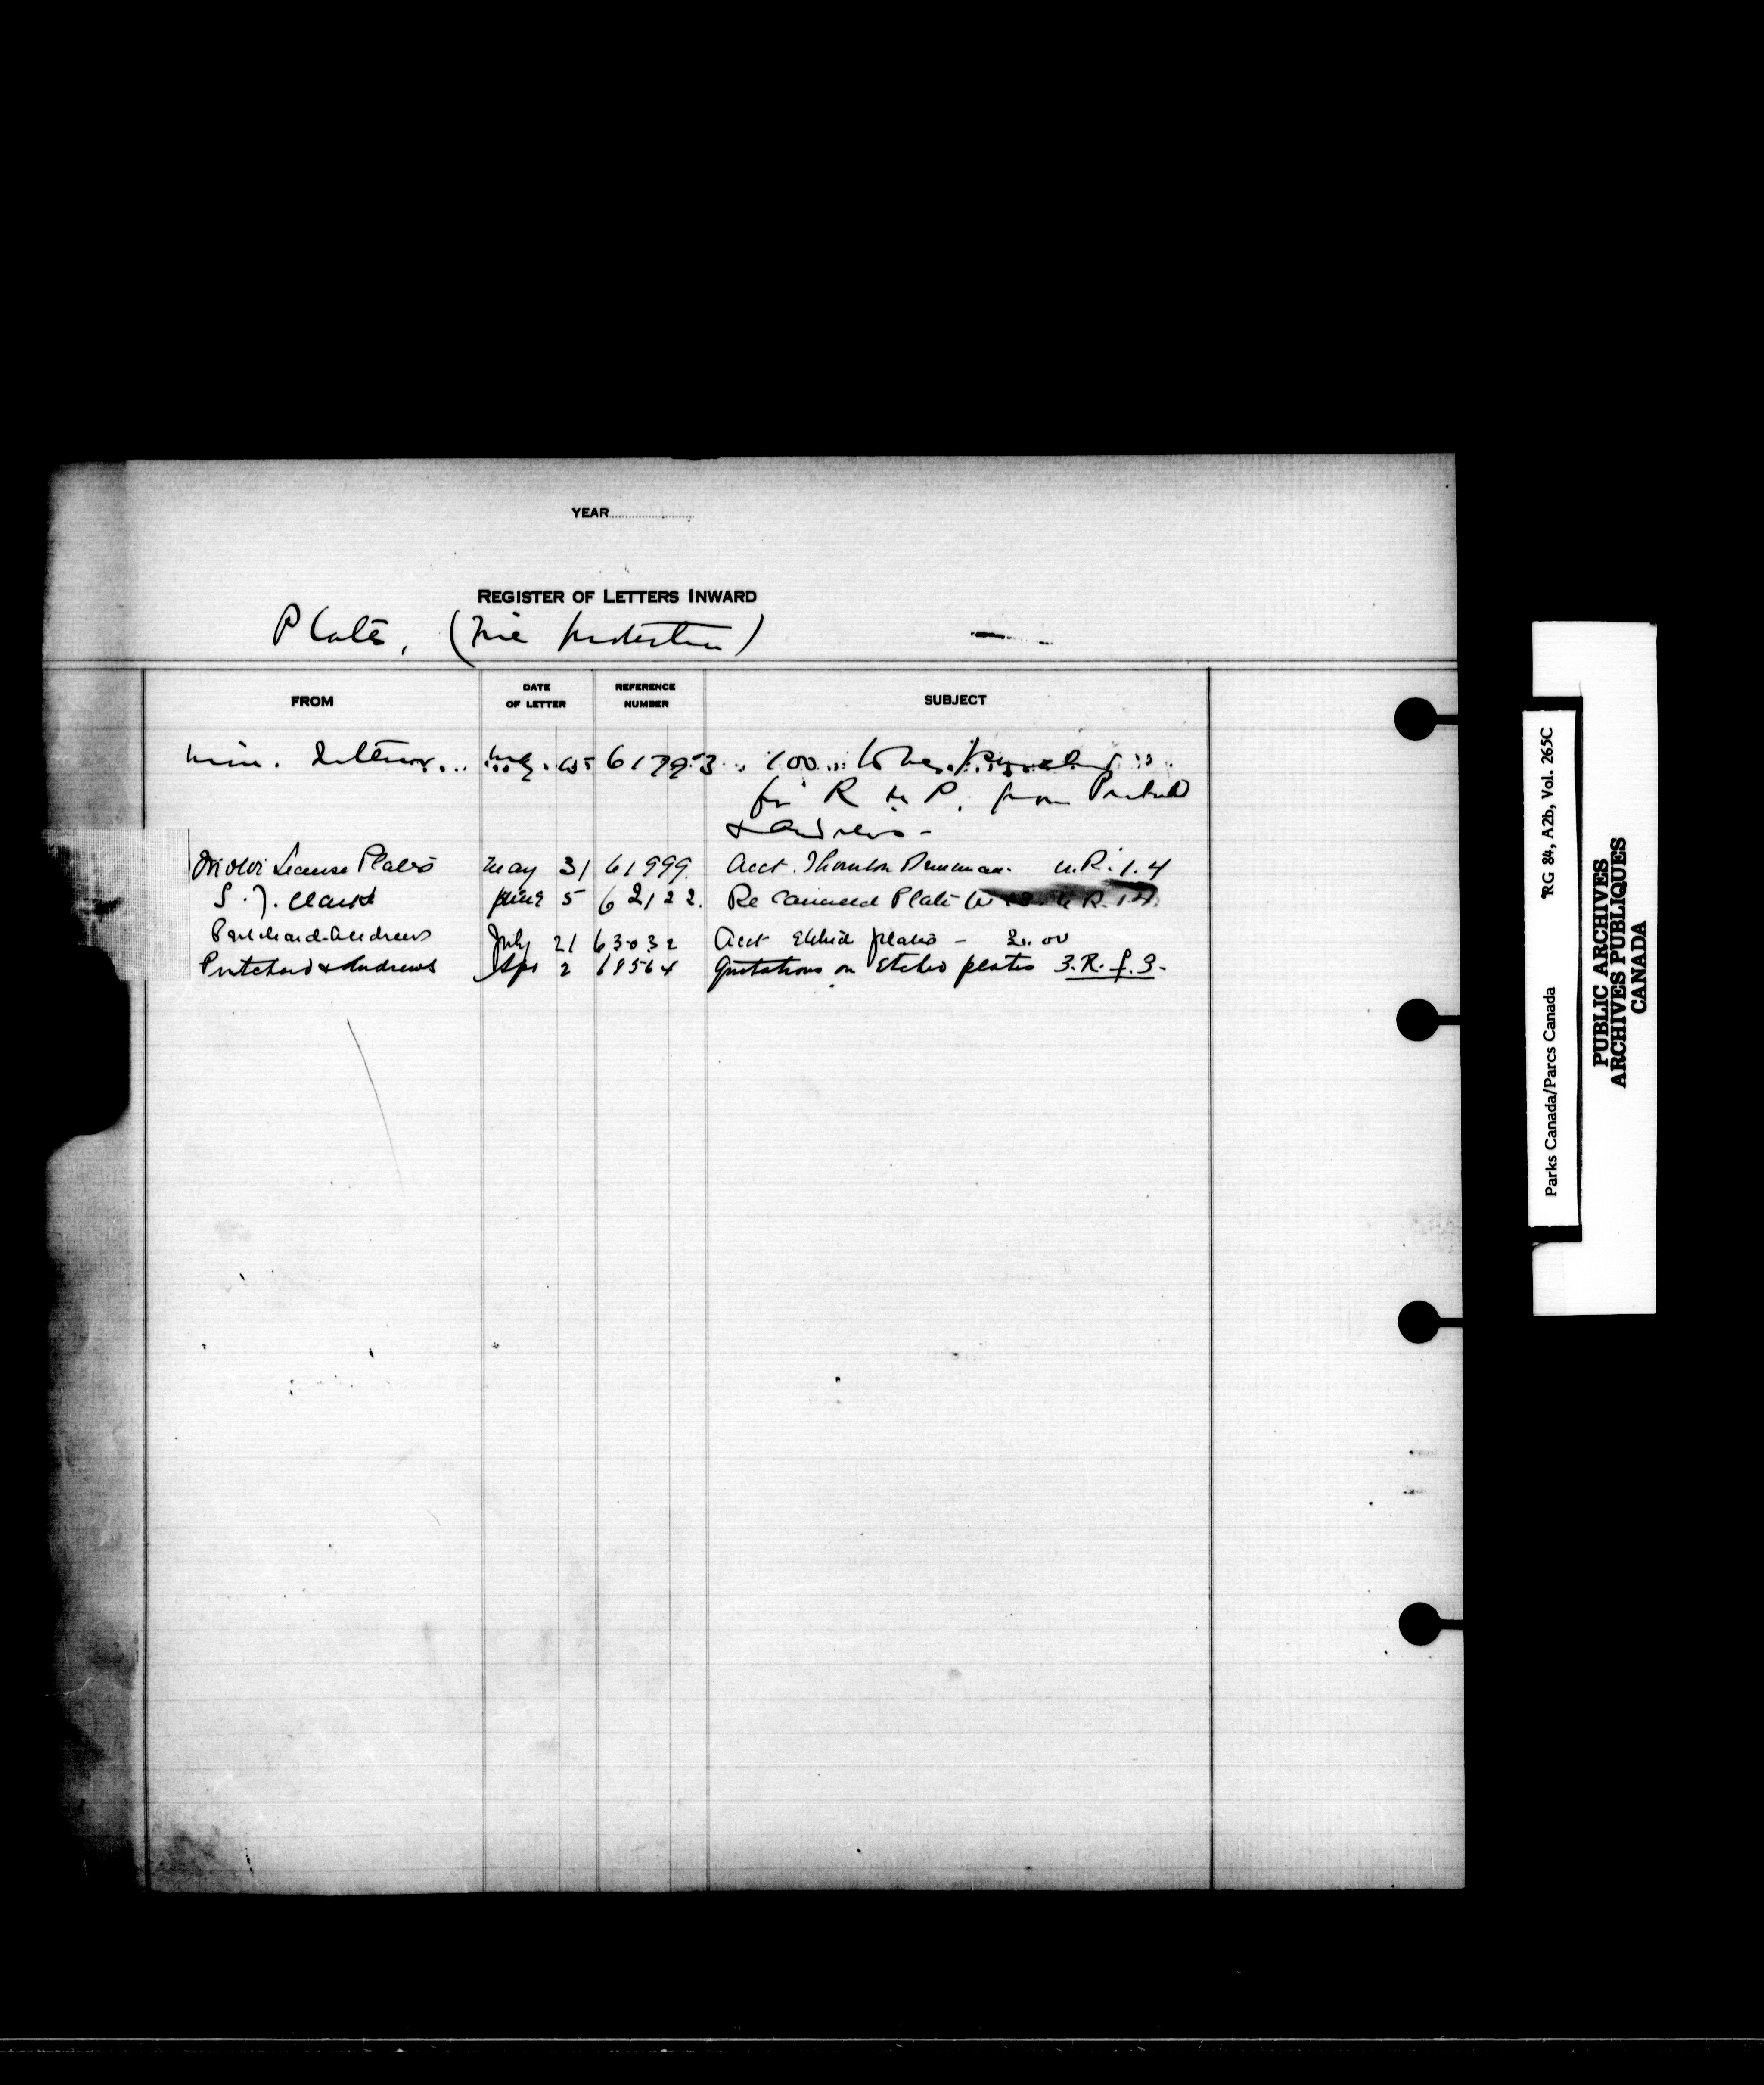 YEAR
REGISTER OF LETTERS INWARD
Plate, (Fire protection)
FROM DATE OF LETTER REFERENCE NUMBER SUBJECT
Min. Interior 617953 100 to be
for R M P. from
& Andrews -
Motor License Plates May 31 61999 Acct. Thornton u.R.1.4
S. J. Clarke June 5 62122. Re Plate
Pritchard-Andrews July 21 63032 Acct Etched plates -
Pritchard & Andrews Apr 2 69564 Quotations on Etched plates 3.R.f.3.
Parks Canada/Parcs Canada RG 84, A2b, Vol. 265C
PUBLIC ARCHIVES
ARCHIVES PUBLIQUES
CANADA